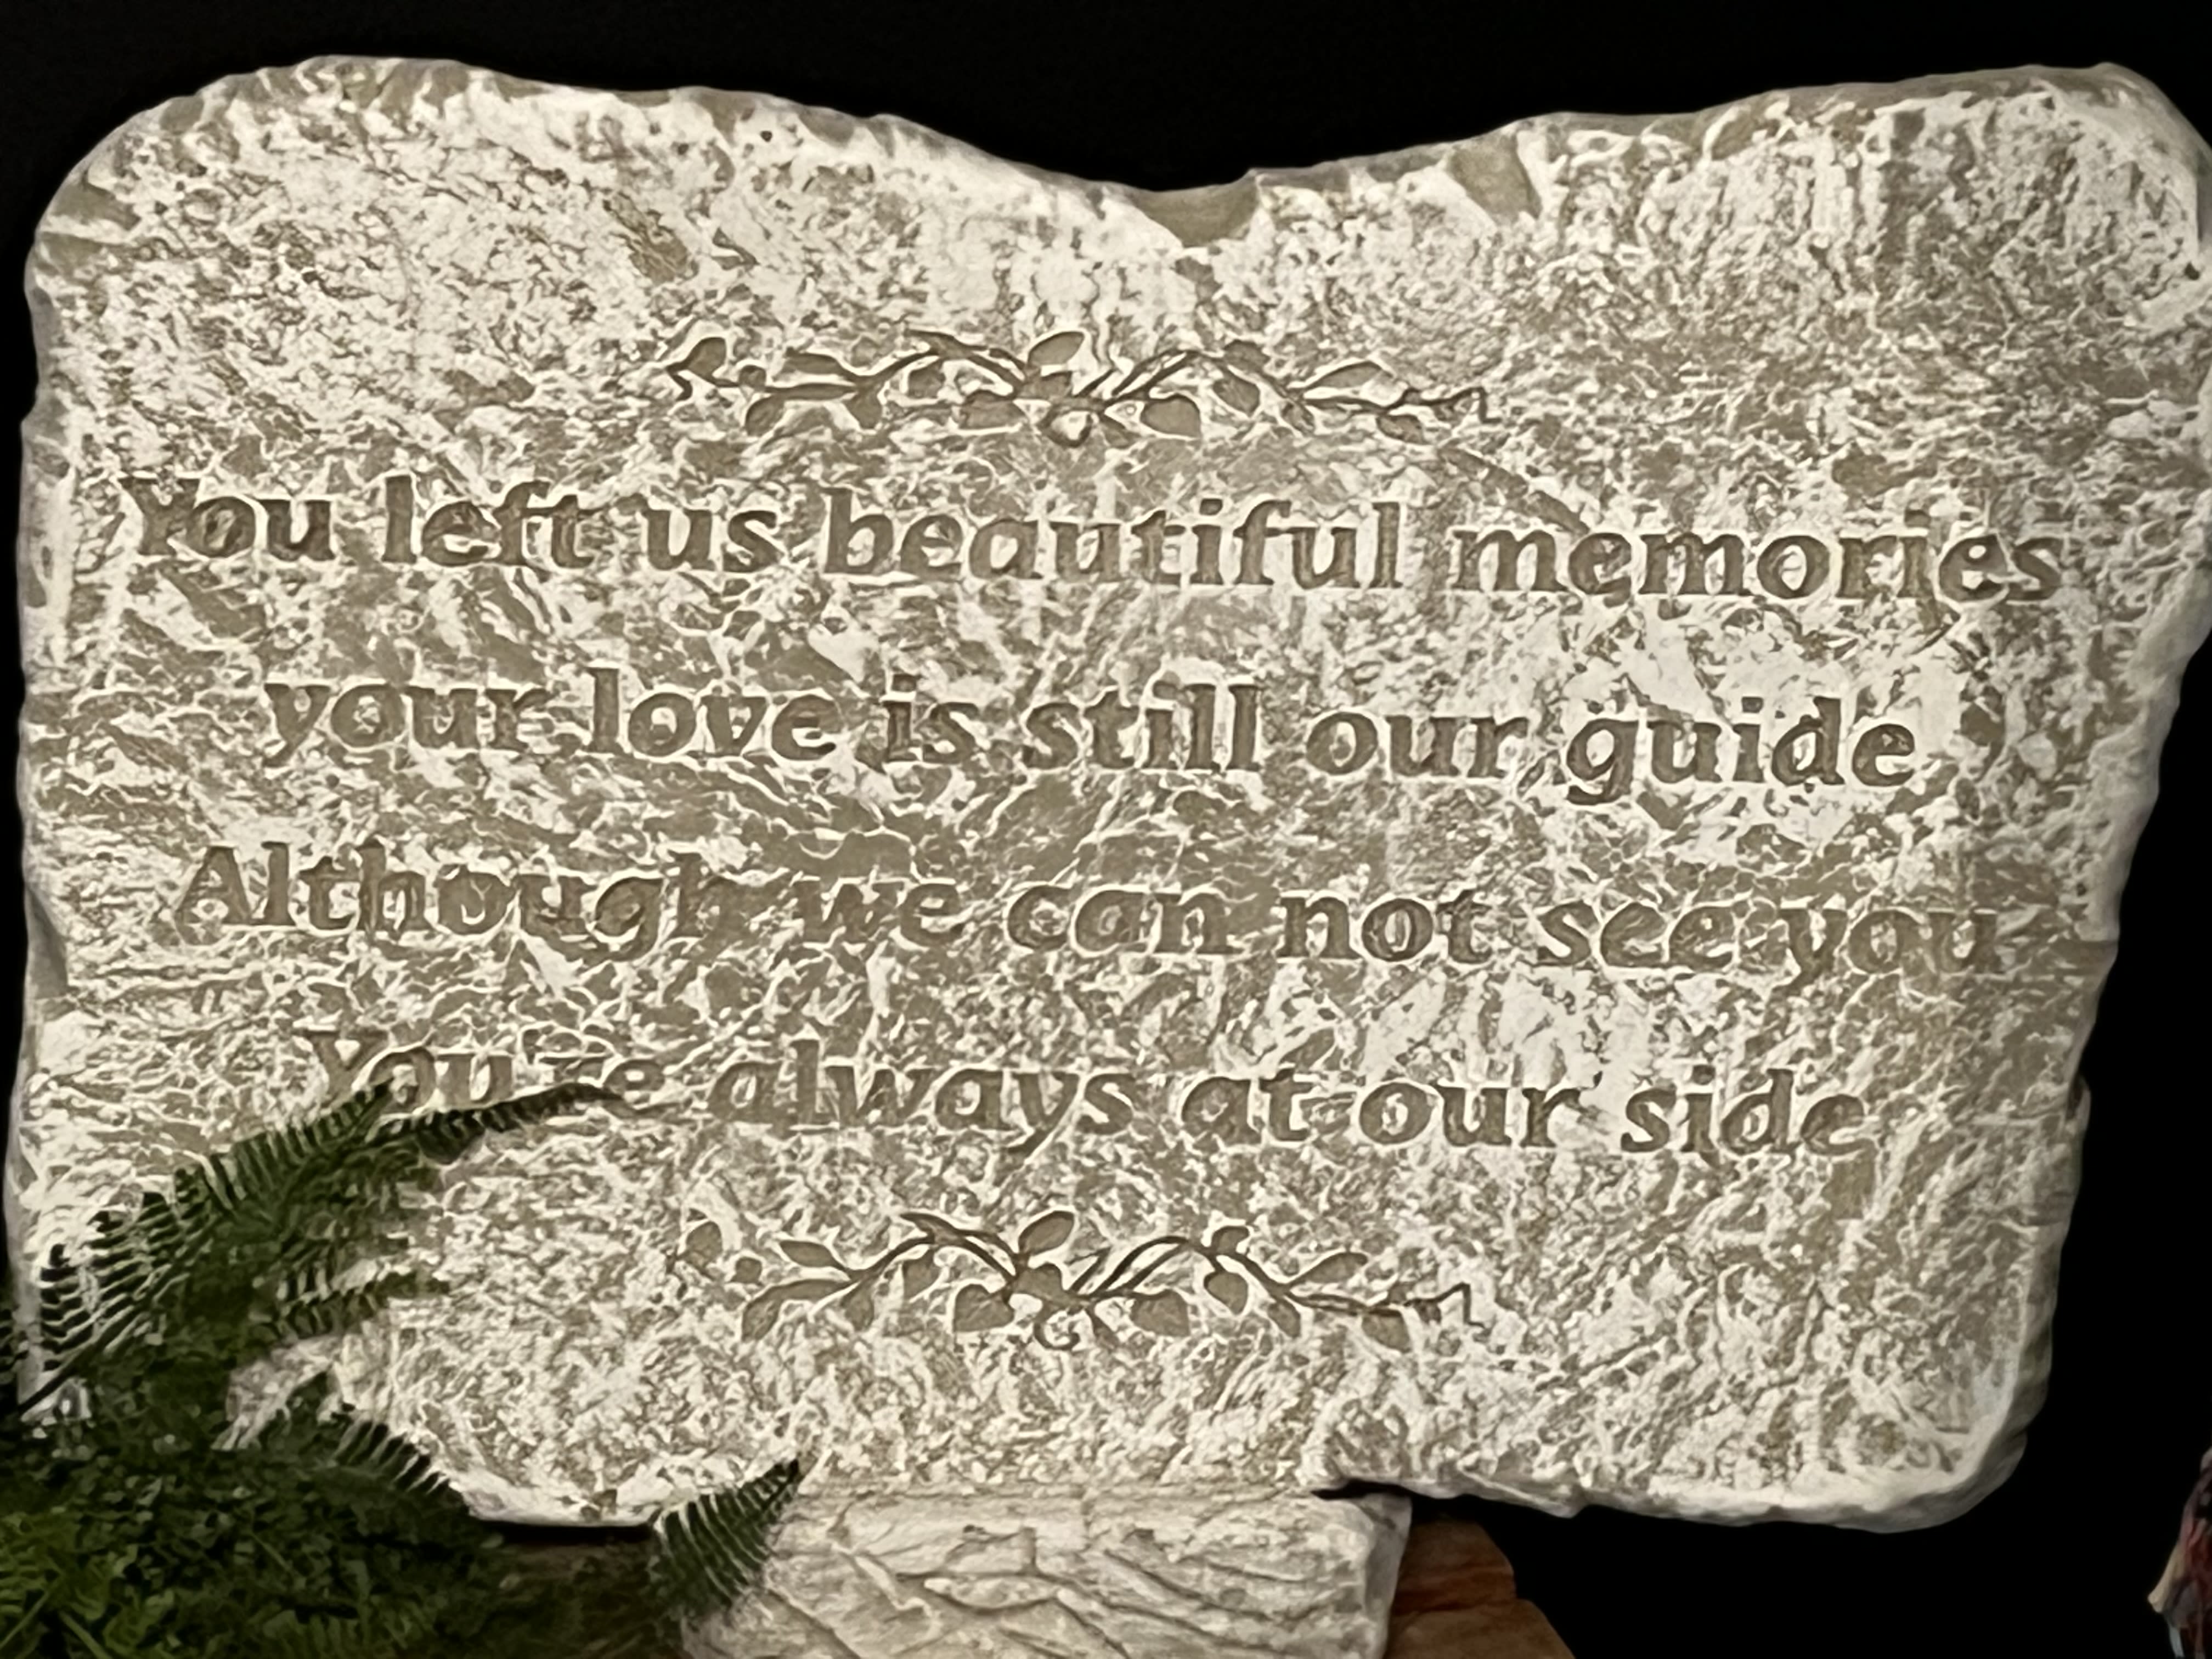 You left us beautiful memories
your love is still our guide
Although we can not see you
You're always at our side